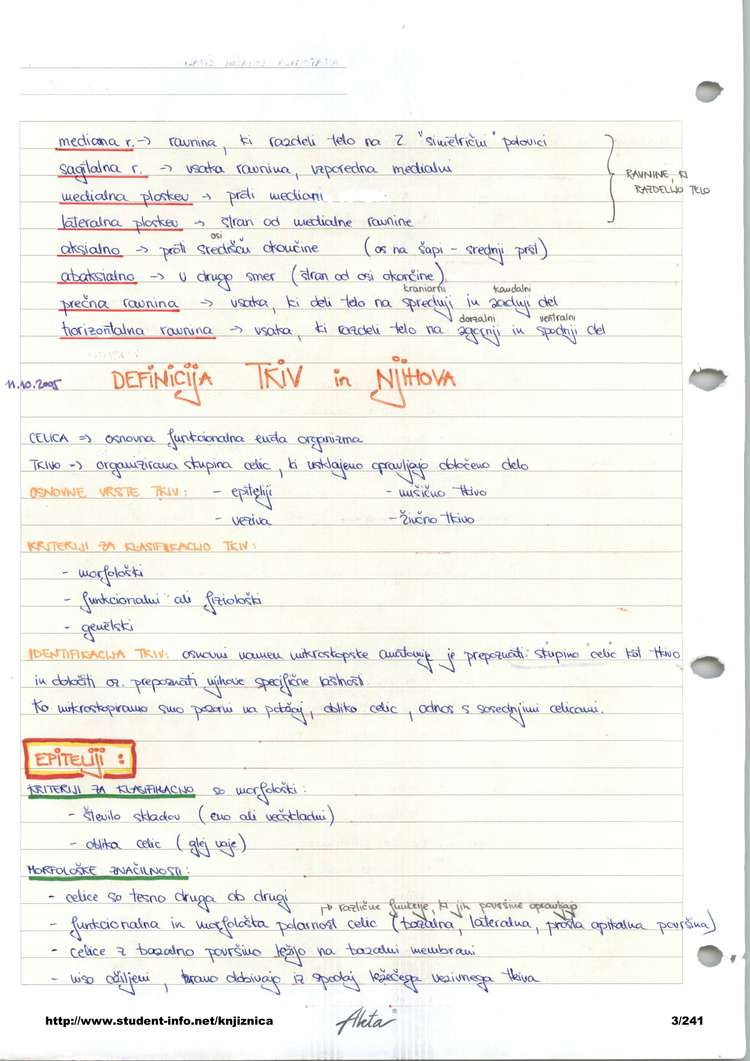 mediana r. → ravnina, ki razdeli telo na 2 "simetrični" polovici
sagitalna r. → vsaka ravnina, vzporedna medialni
medialna ploskev → proti mediani
lateralna ploskev → stran od medialne ravnine
RAVNINE, KI
RAZDELIJO TELO
osi
aksialno → proti središču okončine (os na šapi - srednji prst)
abaksialno → v drugo smer (stran od osi okončine)
kranialni kaudalni
prečna ravnina → vsaka, ki deli telo na sprednji in zadnji del
dorzalni ventralni
horizontalna ravnina → vsaka, ki razdeli telo na zgornji in spodnji del
11.10.2005 DEFINICIJA TKIV in NJIHOVA
CELICA => osnovna funkcionalna enota organizma
TKIVO → organizirana skupina celic, ki usklajeno opravljajo določeno delo
OSNOVNE VRSTE TKIV: - epiteliji - mišično tkivo
- veziva - živčno tkivo
KRITERIJI ZA KLASIFIKACIJO TKIV:
- morfološki
- funkcionalni ali fiziološki
- genetski
IDENTIFIKACIJA TKIV: osnovni namen mikroskopske anatomije je prepoznati skupino celic kot tkivo
in določiti oz. prepoznati njihove specifične lastnosti.
Ko mikroskopiramo smo pozorni na položaj, obliko celic, odnos s sosednjimi celicami.
EPITELIJI:
KRITERIJI ZA KLASIFIKACIJO so morfološki:
- število skladov (eno ali večskladni)
- oblika celic (glej vaje)
MORFOLOŠKE ZNAČILNOSTI:
- celice so tesno druga ob drugi
→ različne funkcije, ki jih površine opravljajo
- funkcionalna in morfološka polarnost celic (bazalna, lateralna, prosta apikalna površina)
- celice z bazalno površino ležijo na bazalni membrani
- niso ožiljeni, hrano dobivajo iz spodaj ležečega vezivnega tkiva
http://www.student-info.net/knjiznica Aleta 3/241